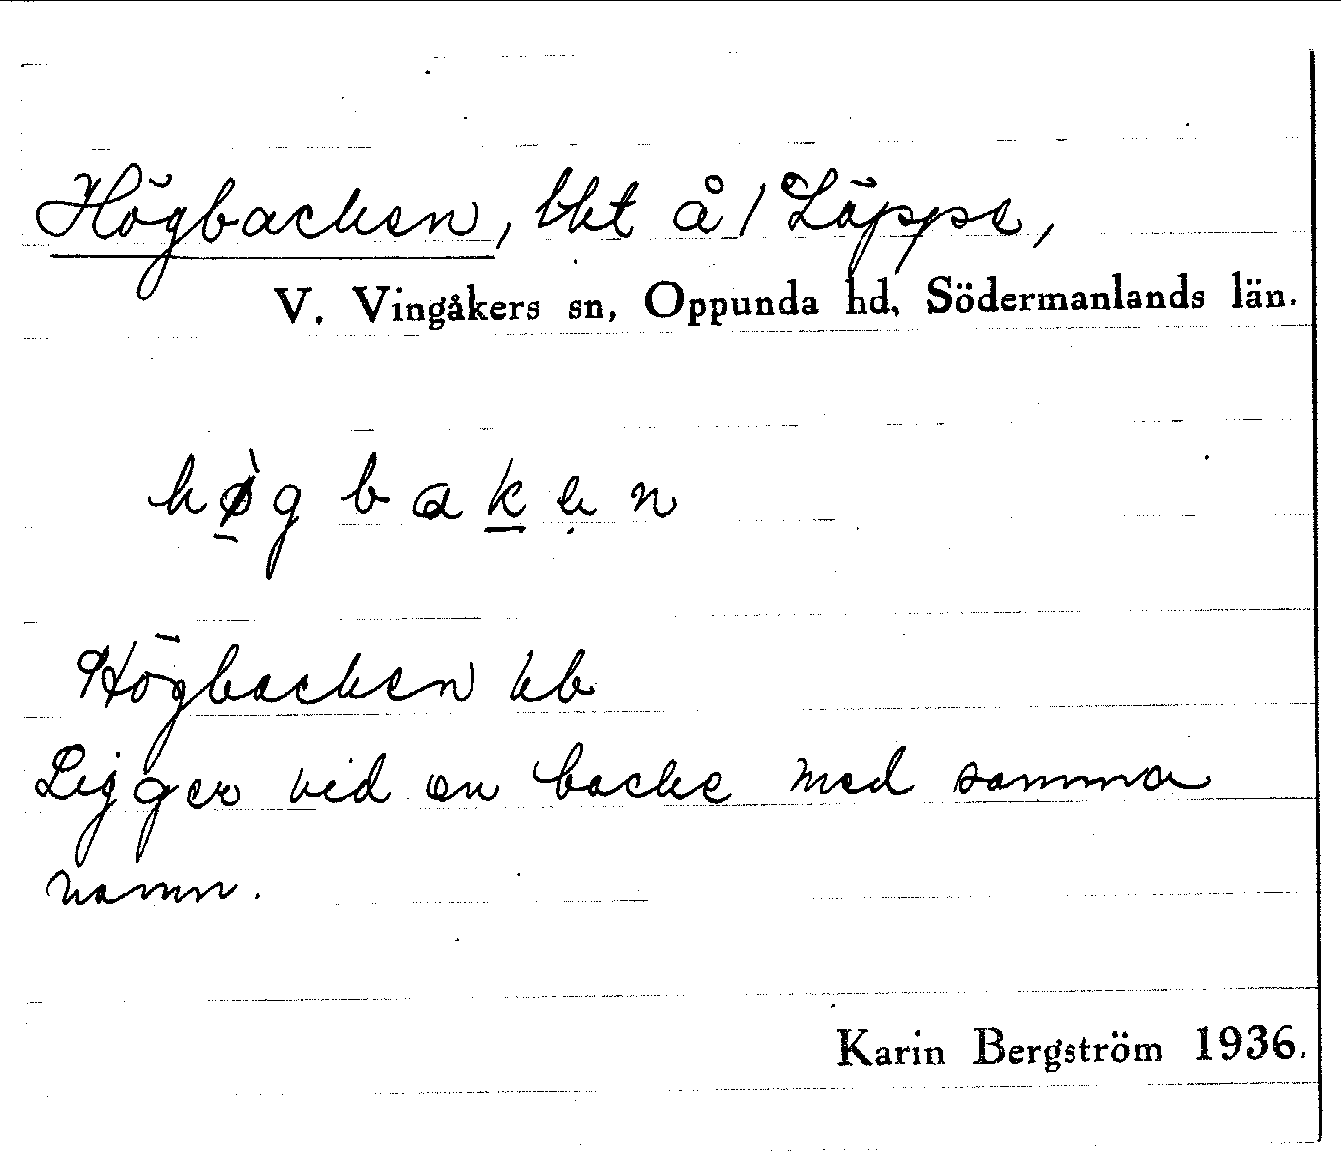 Högbacken, bkt å/ Läppe,
V. Vingåkers sn, Oppunda hd, Södermanlands län.
hø̀gbakẹn
Högbacken kb
Ligger vid en backe med samma
namn.
Karin Bergström 1936.